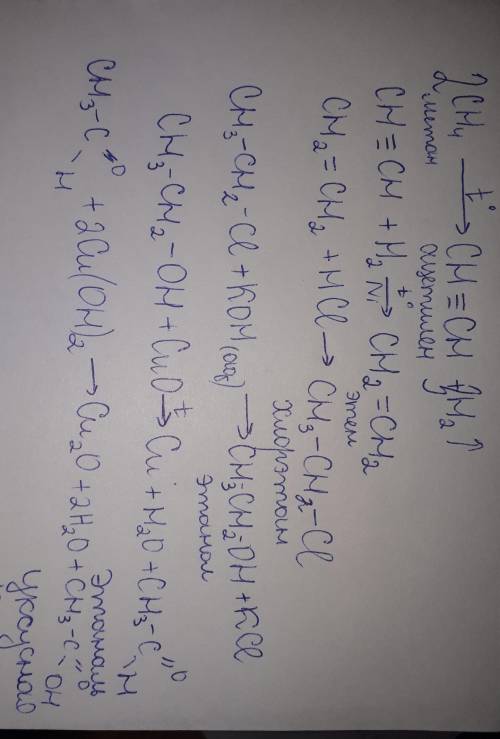 2CH₄ —t°→ CH≡CH + 3H₂↑
метан ацетилен
CH≡CH + H₂ —t°, Ni→ CH₂=CH₂
этен
CH₂=CH₂ + HCl → CH₃-CH₂-Cl
хлорэтан
CH₃-CH₂-Cl + KOH → CH₃CH₂OH + KCl
этанол
CH₃-CH₂-OH + CuO —t→ Cu + H₂O + CH₃-C=O -H
Этаналь
CH₃-C=O -H + 2Cu(OH)₂ → Cu₂O + 2H₂O + CH₃-C=O -OH
Уксусная